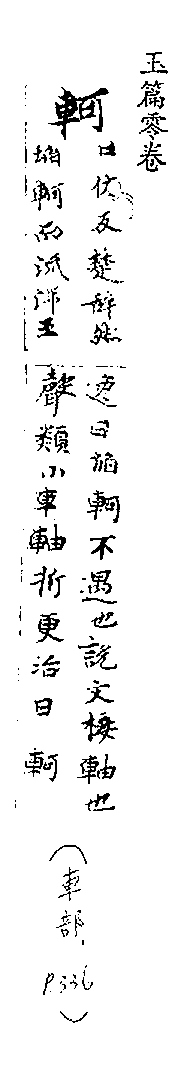 玉篇零卷
軻
口佐反楚辭然
埳軻而沠滯王
逸曰埳軻不遇也說文椄軸也
聲類小車軸折更治曰軻
(車部, P.336)